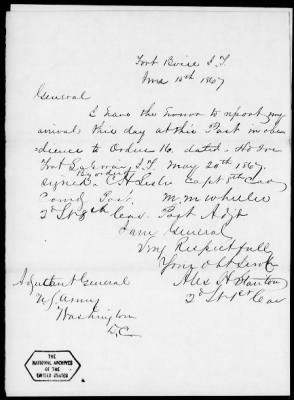 Fort Boise I.T.
June 10th 1867
General
I have the honor to report my
arrival this day at this Post in obe
dience to Order 16. dated. Hd Qrs
Fort I.T. May 20th 1867.
By order
signed Capt 8th Cav
Comdg Post. M. M. Wheeler
2d Lt 8th Cav. Post Adjt
I am General
Very Respectfully
Your Obt Servt
Adjutant General
Alex H. Stanton
U.S. Army
2d Lt 1st Cav
Washington
D.C.
THE
NATIONAL ARCHIVES
OF THE
UNITED STATES